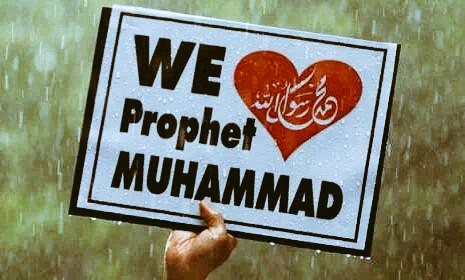 WE
محمد رسول الله
Prophet
MUHAMMAD